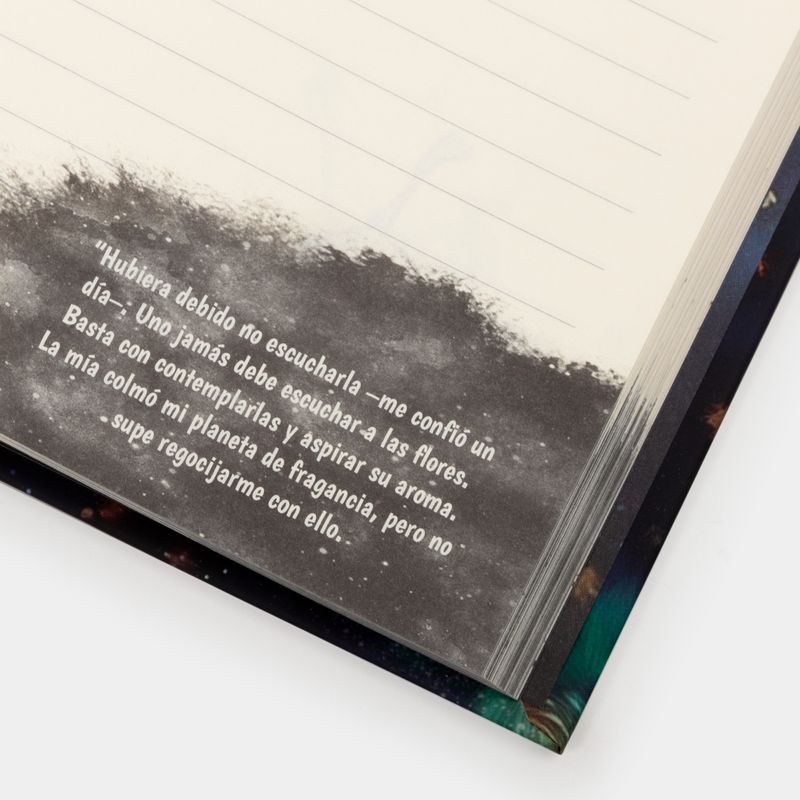 "Hubiera debido no escucharla —me confió un
día—. Uno jamás debe escuchar a las flores.
Basta con contemplarlas y aspirar su aroma.
La mía colmó mi planeta de fragancia, pero no
supe regocijarme con ello.